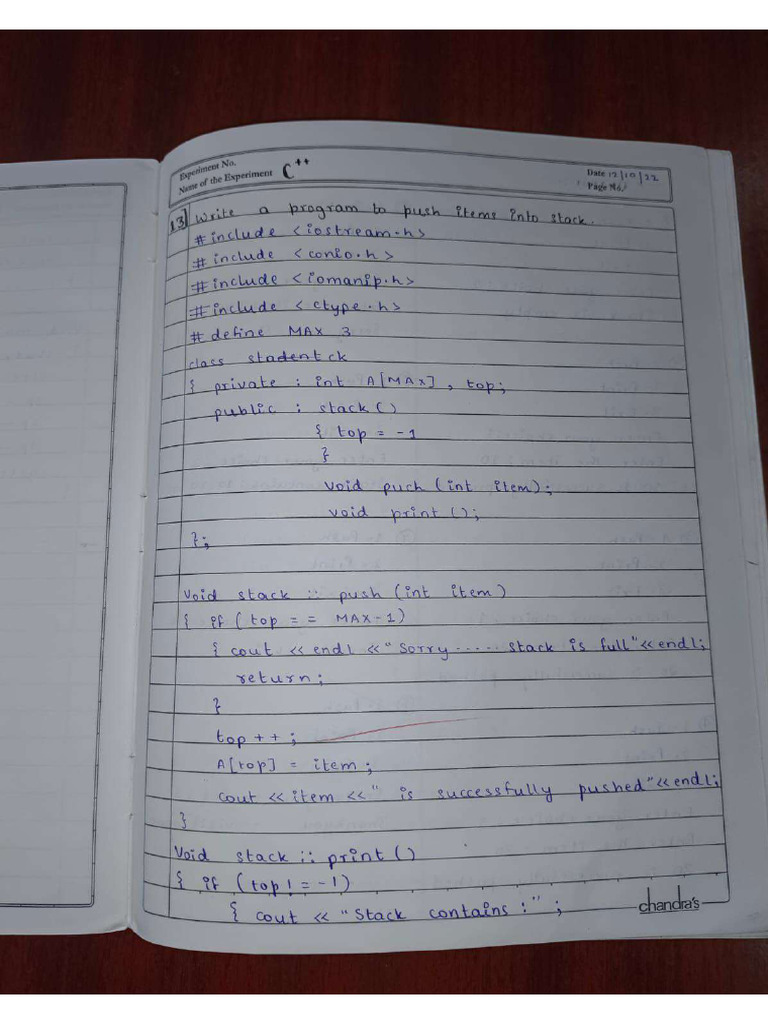 Experiment No.
Name of the Experiment C++
Date 12/10/22
Page No.
13] Write a program to push items into stack.
# include <iostream.h>
# include <conio.h>
# include <iomanip.h>
# include <ctype.h>
# define MAX 3
class stack
{ private : int A[MAX], top;
public : stack()
{ top = -1
}
void puch (int item);
void print ();
};
void stack :: push (int item)
{ if ( top == MAX-1)
{ cout << endl << "Sorry ..... stack is full"<<endl;
return;
}
top ++ ;
A[top] = item ;
cout << item << " is successfully pushed"<<endl;
}
void stack :: print ()
{ if (top! = -1)
{ cout << "Stack contains :" ;
chandra's